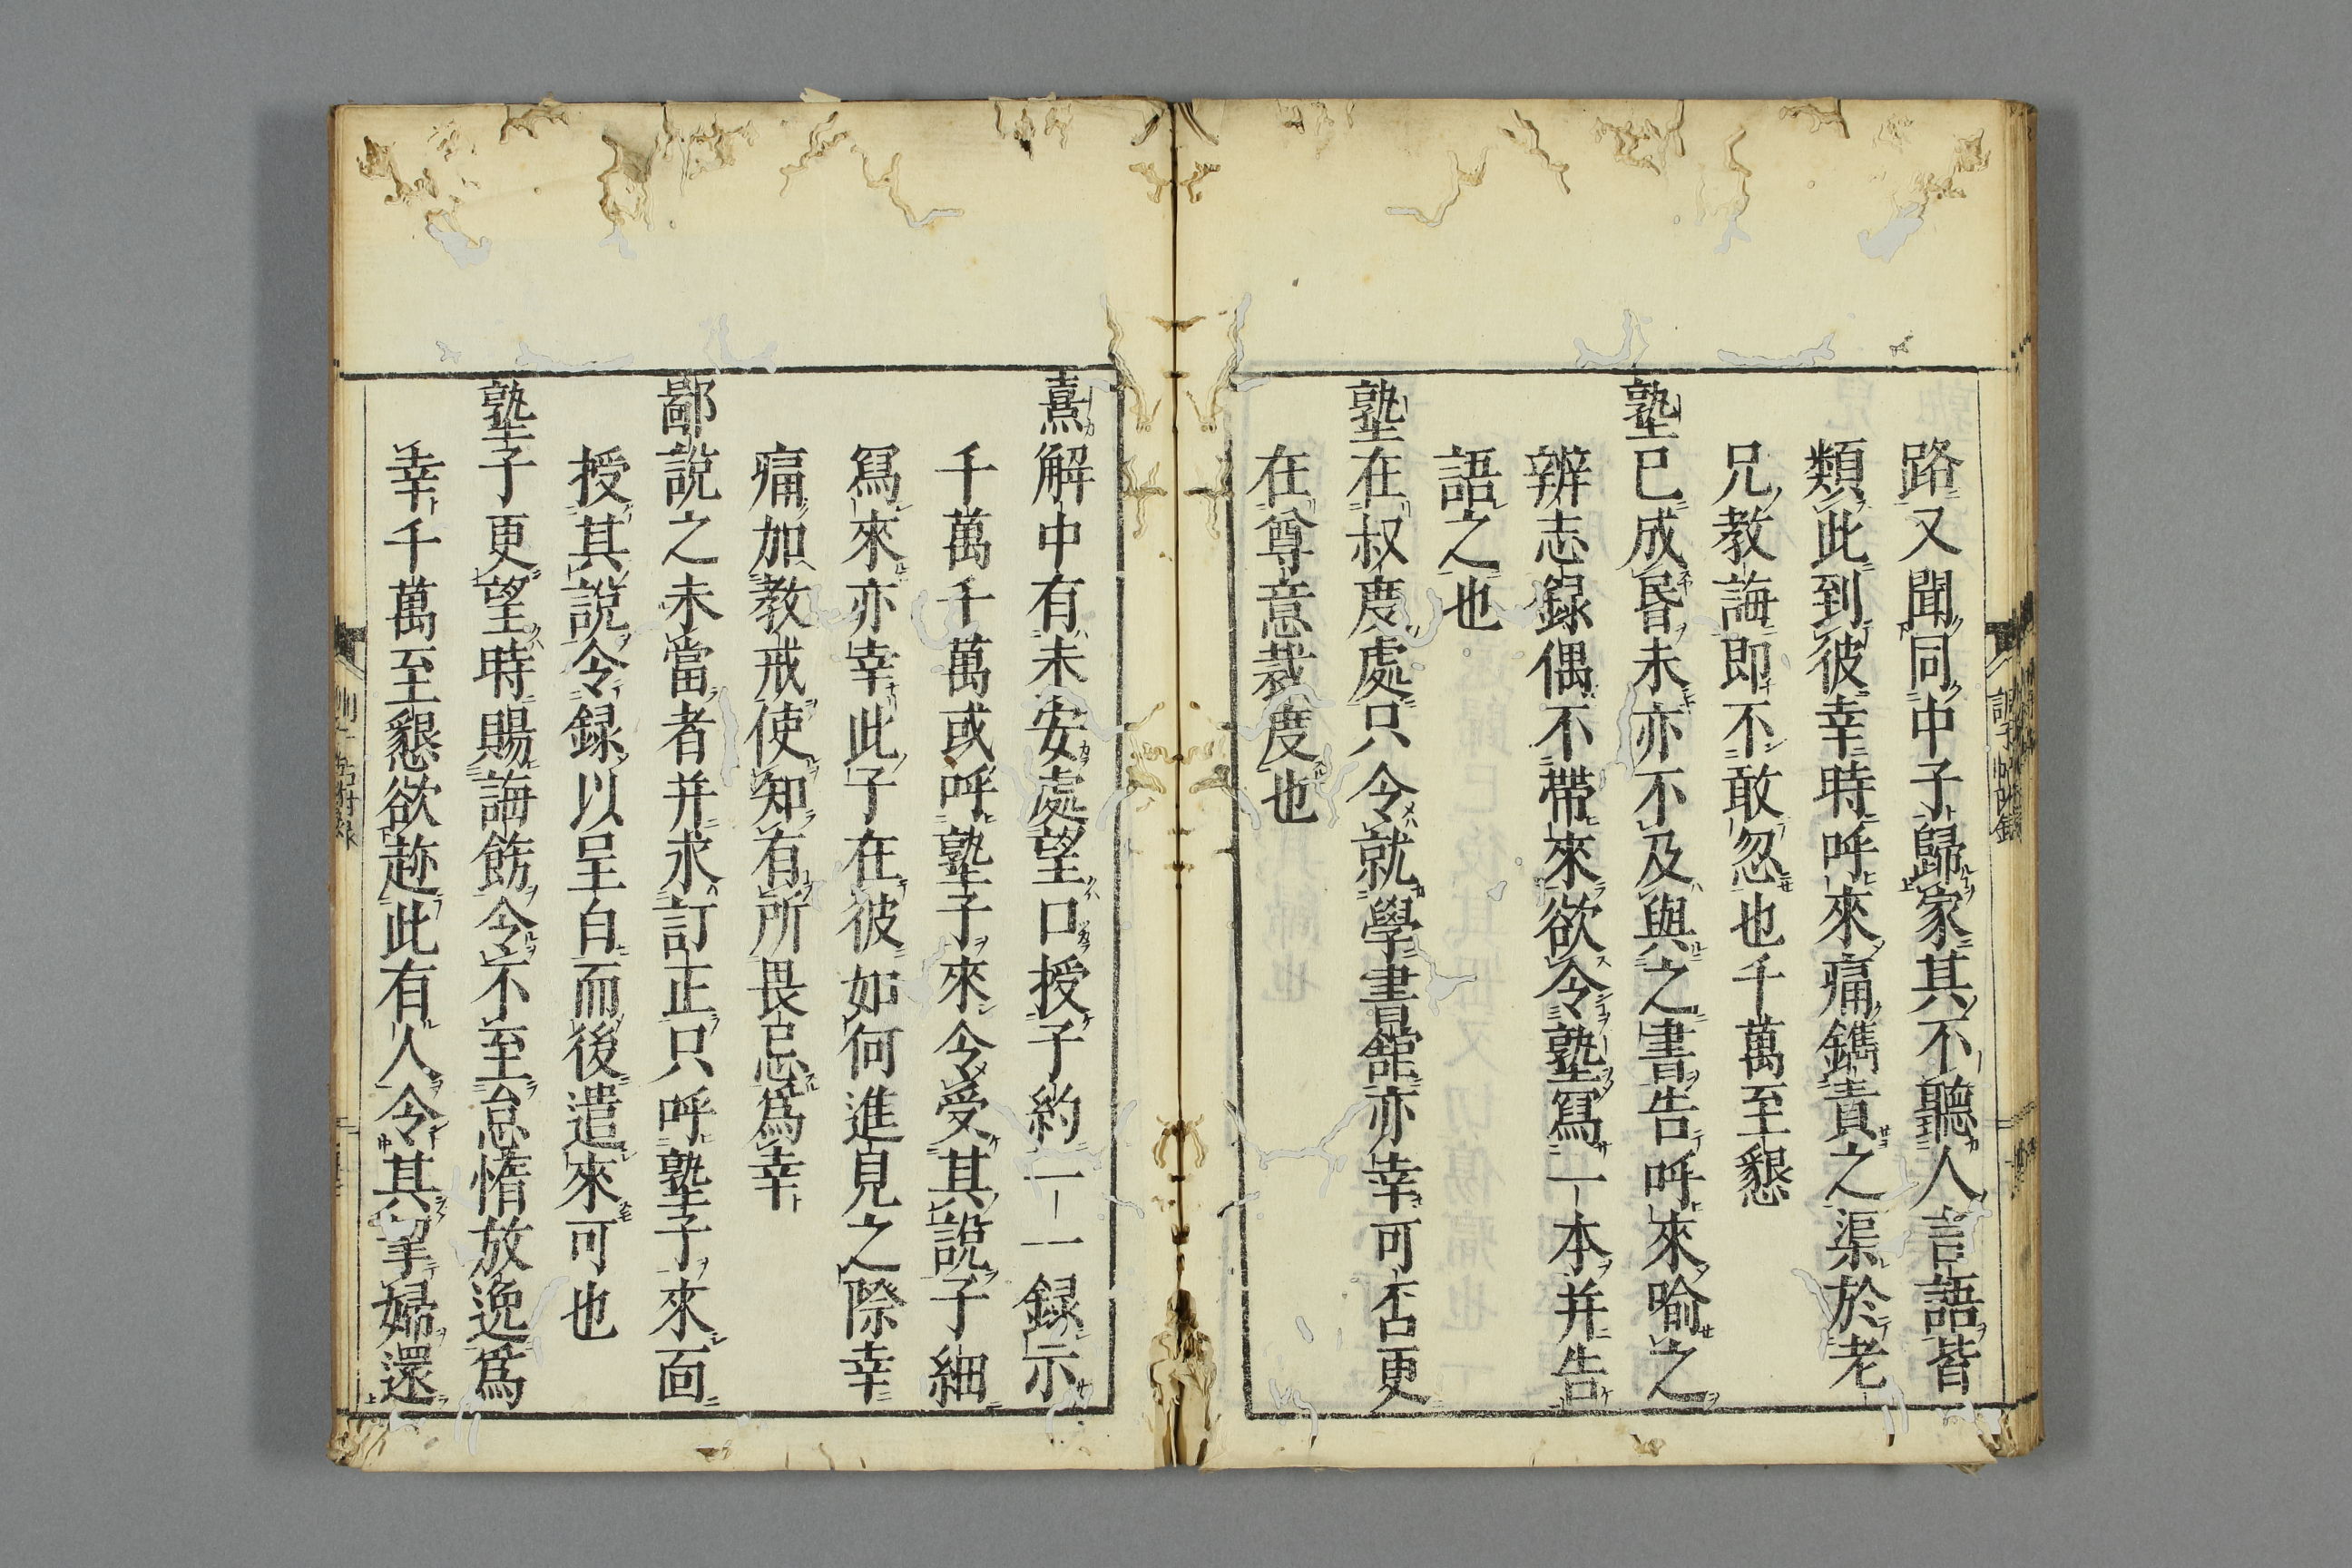 路又聞同中子歸家其不聽人言語皆
類此到彼幸時呼來痛鐫責之渠於老
兄教誨即不敢忽也千萬至懇
塾已成昏未亦不及與之書告呼來喻之
辨志録偶不帶來欲令塾寫一本并告
語之也
塾在叔度處只令就學書舘亦幸可否更
在尊意裁度也
熹解中有未安處望口授子約一一録示
千萬千萬或呼塾子來令受其說子細
寫來亦幸此子在彼如何進見之際幸
痛加教戒使知有所畏忌爲幸
鄙說之未當者并求訂正只呼塾子來面
授其說令録以呈白而後遣來可也
塾子更望時賜誨飭令不至怠惰放逸爲
幸千萬至懇欲趂此有人令其挈婦還